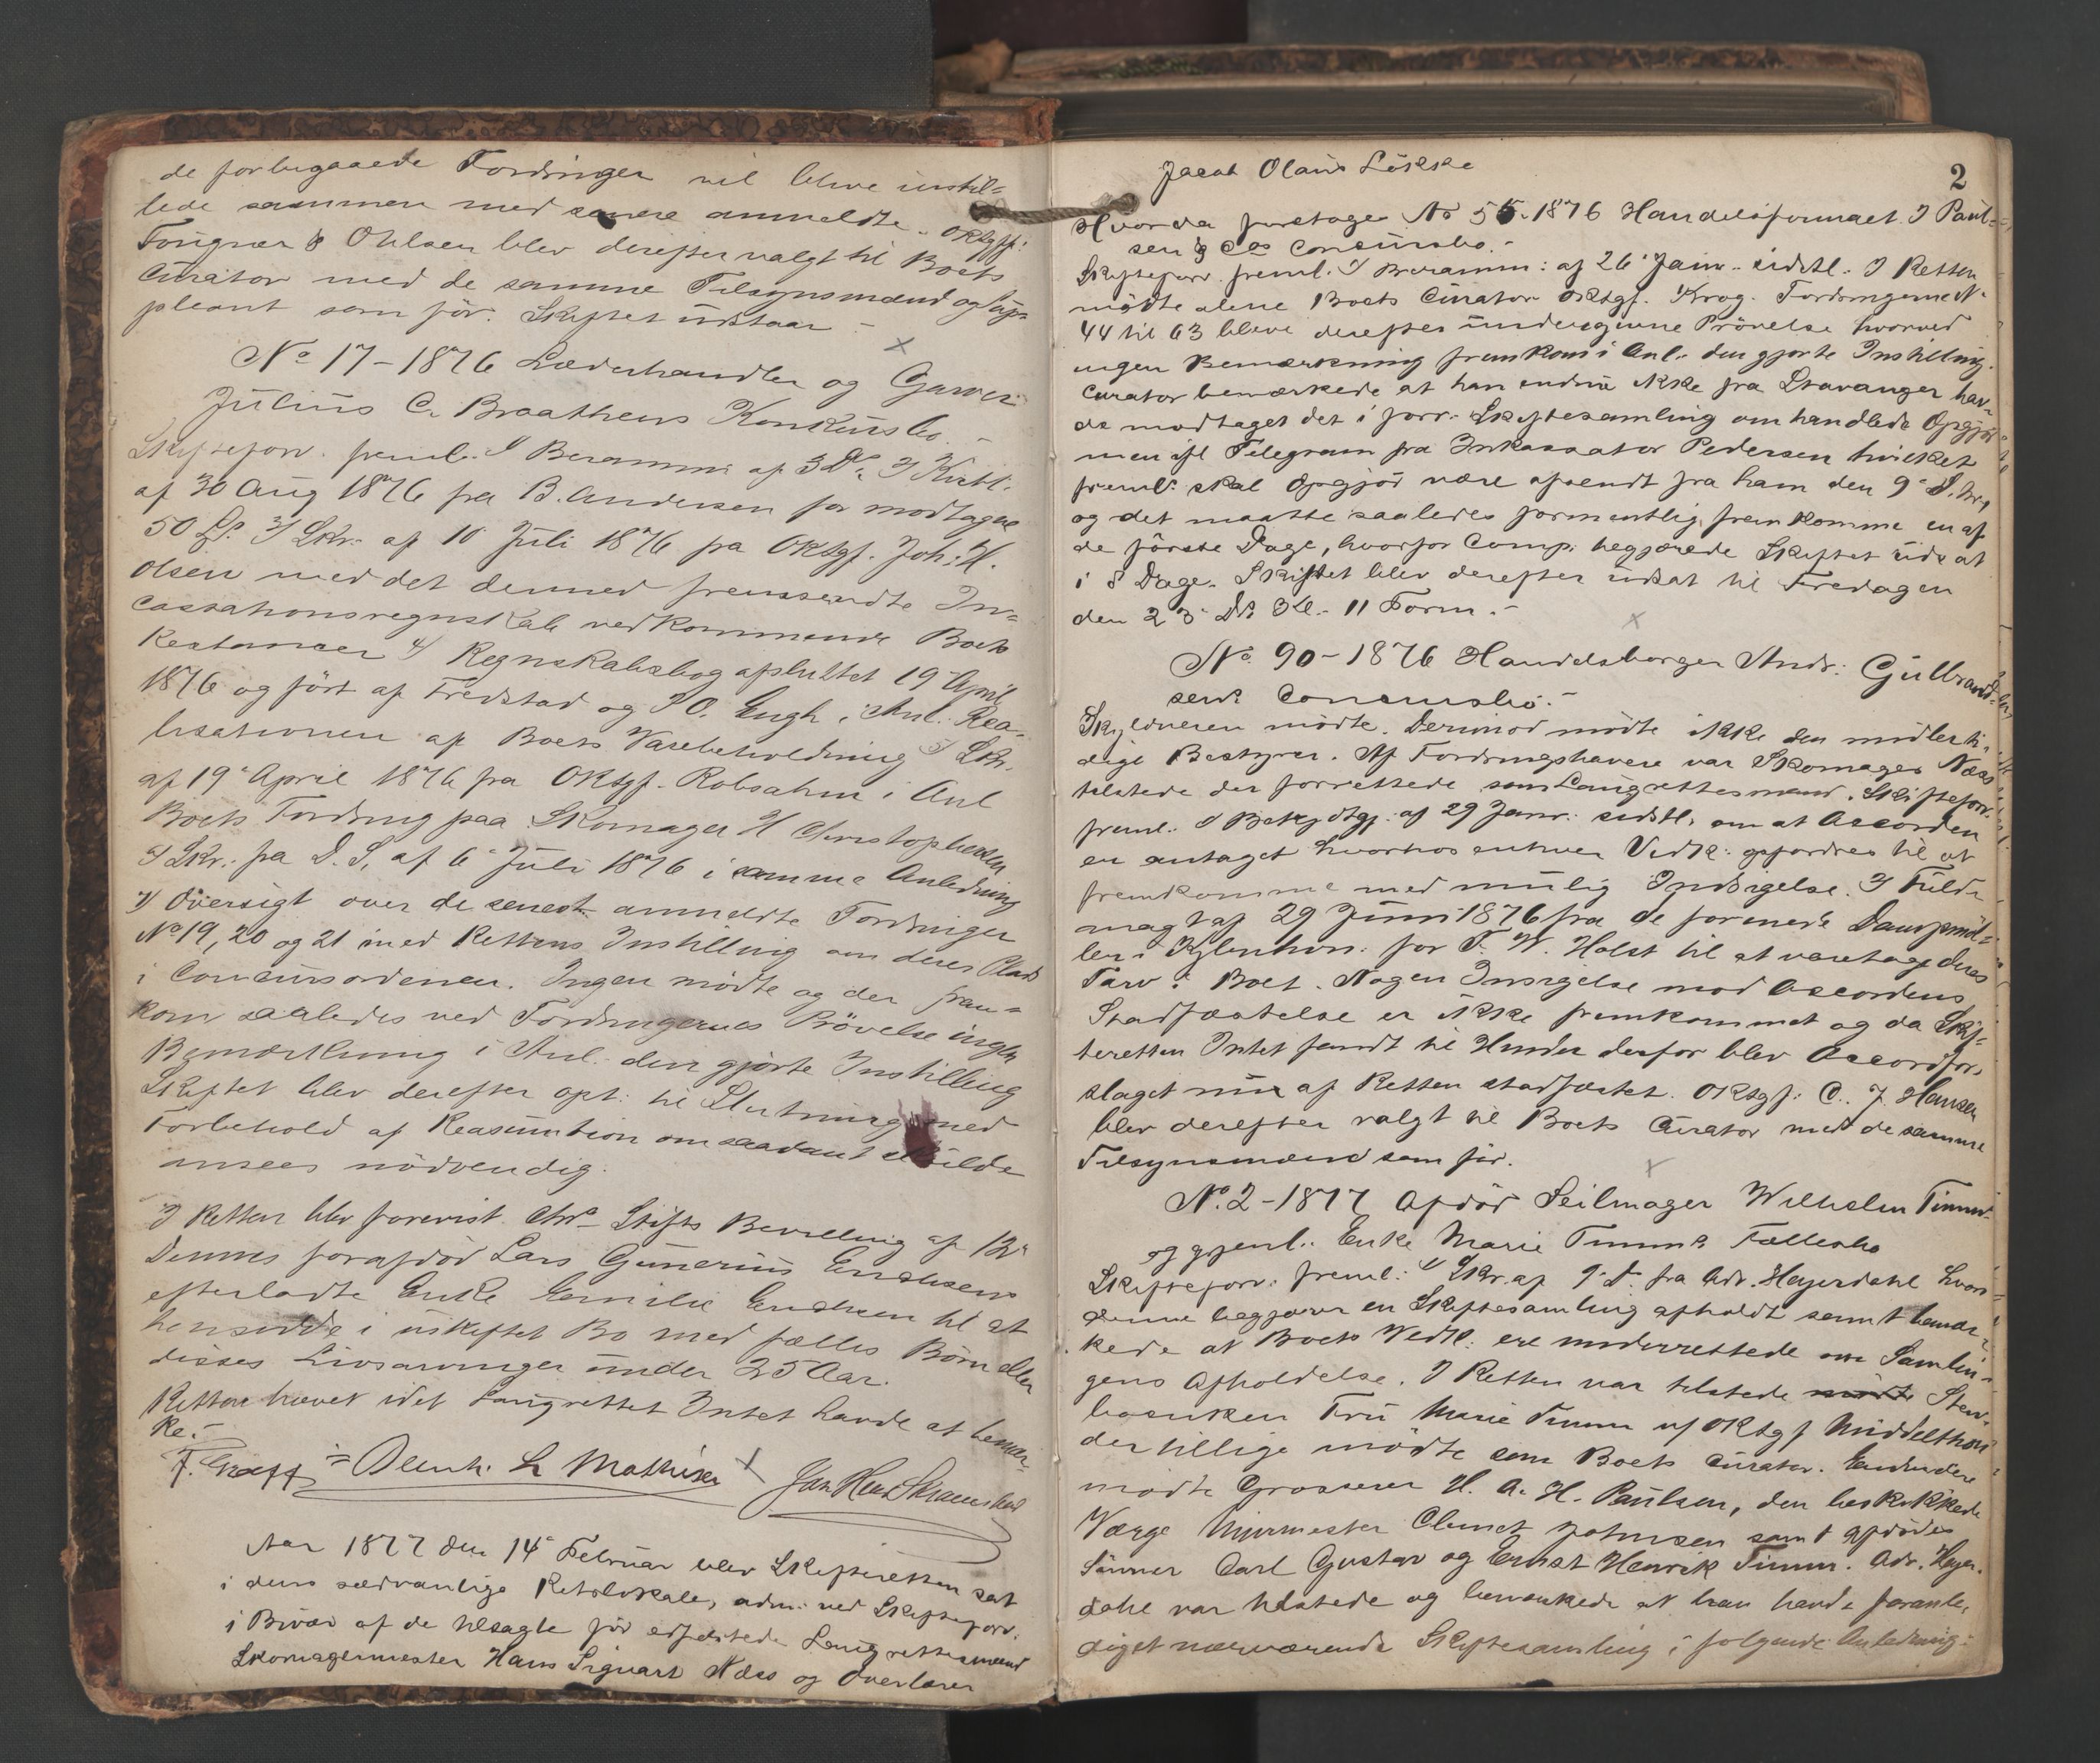 de forbigaaede Fordringer vil blive instil-
lede sammen med senere anmeldte. OKtsgf:
Tougner & Ohlsen blev derefter valgt til Boets
Curator med de samme Tilsynsmænd og sup-
pleant som för. Skiftet udstaar -
No 17 - 1876 Læderhandler og Garver
Julius C. Braathens Konkursbo. -
Skifteforv. freml. 1/ Beramm: af 3 Ds. 2/ Kvitt.
af 30 Aug 1876 fra B. Andersen for modtagne
50 Sp. 3/ Skr. af 10 Juli 1876 fra OKtsgf. Joh. H.
Olsen med det dermed fremsendte In-
cassationsregnskab vedkommende Boets
Restancer 4/ Regnskabsbog afsluttet 19 April
1876 og fört af Fredstad og P O. Engh i Anl. Rea-
lisationen af Boets Varebeholdning 5/ Skr.
af 19 April 1876 fra OKtsgf. Robsahm i Anl
Boets Fordring paa Skomager H Christophersen
6/ Skr. fra D. S. af 6 Juli 1876 i samme Anledning
7/ Oversigt over de senest anmeldte Fordringer
No 19, 20 og 21 med Rettens Instilling om deres Plads
i Concursordenen. Ingen mödte og der frem-
kom saaledes ved Fordringernes Prövelse ingen
Bemærkning i Anl. den gjorte Instilling
Skiftet blev derefter opt. til Slutning med
Forbehold af Reasumtion om saadant skulde
ansees nödvendig.
I Retten blev forevist Chra Stifts Bevilling af 12
Dennes for afdöd Lars Gunerius Endresens
efterladte Enke Emilie Endresen til at
hensidde i uskiftet Bo med fælles Börn eller
disses Livsarvinger under 25 Aar.
Retten hævet idet Laugrettet Intet havde at bemær-
ke. -
Aar 1877 den 14 Februar blev Skifteretten sat
i dens sædvanlige Retslokale, adm. ved Skifteforv.
i Bivær af de tilsagte för edfæstede Laugrettesmænd
Skomagermester Hans Sigvart Næss og Overlærer
2
Jacob Olaus Lökke
Hvorda foretoges No 55. 1876 Handelsfirmaet I Paul-
sen & Cos Concursbo. -
Skifteforv. freml. 1/ Beramm: af 26 Janr. sidstl. I Retten
mödte alene Boets Curator OKtsgf. Krog. Fordringerne N.
44 til 63 bleve derefter undergivne Prövelse hvorved
ingen Bemærkning fremkom i Anl. den gjorte Instilling.
Curator bemærkede at han endnu ikke fra Stavanger hav-
de modtaget det i forr. Skiftesamling omhandlede Opgjör
men ifl Telegram fra Inkassator Pedersen hvilket
freml. skal Opgjör være afsendt fra ham den 9 D. M.,
og det maatte saaledes formentlig fremkomme en af
de förste Dage, hvorfor Comp. begjærede Skiftet uds at
i 8 Dage. Skiftet blev derefter udsat til Fredagen
den 23 Ds Kl. 11 Form. -
No. 90 - 1876 Handelsborger Andr. Gulbrand-
sens Concursbo. -
Skyldneren mödte. Derimod mödte ikke den midlerti-
dige Bestyrer. Af Fordringshavere var Skomager Næss
tilstede der forrettede som Laugrettesmand. Skifteforv.
freml. 1/ Bekjdtgj. af 29 Janr. sidstl. om at Accorden
er antaget hvorhos enhver Vedk. opfordres til at
fremkomme med mulig Indsigelse. 2/ Fuld-
magt af 29 Juni 1876 fra de forenede Dampmöl-
ler i Kjbenhvn. for F. W. Holst til at varetage deres
Tarv i Boet. Nogen Insigelse mod Accordens
Stadfæstelse er ikke fremkommet og da Skif-
teretten Intet fandt til Hinder derfor blev Accordfor-
slaget nu af Retten stadfæstet. OKtsgf. C. J. Hansen
blev derefter valgt til Boets Curator med de samme
Tilsynsmænd som för.
No. 2 - 1877 Afdöd Seilmager Wilhelm Timm
og gjenl. Enke Marie Timms Fællesbo
Skifteforv. freml. 1/ Skr. af 9 D. fra Adv. Heyerdahl hvor
denne begjærer en Skiftesamling afholdt samt bemær-
kede at Boets Vedk. ere underrettede om Samlin-
gens Afholdelse. I Retten var tilstede mödte Ster-
boenken Fru Marie Timm v/ OKtsgf Middelthon
der tillige mödte som Boets Curator. Endvidere
mödte Grosserer H. A. H. Paulsen, den beskikkede
Værge Murmester Clemet Johnsen samt Afdödes
Sönner Carl Gustav og Ernst Henrik Timm. Adv. Heyer-
dahl var tilstede og bemærkede at han havde foranle-
diget nærværende Skiftesamling i fölgende Anledning: